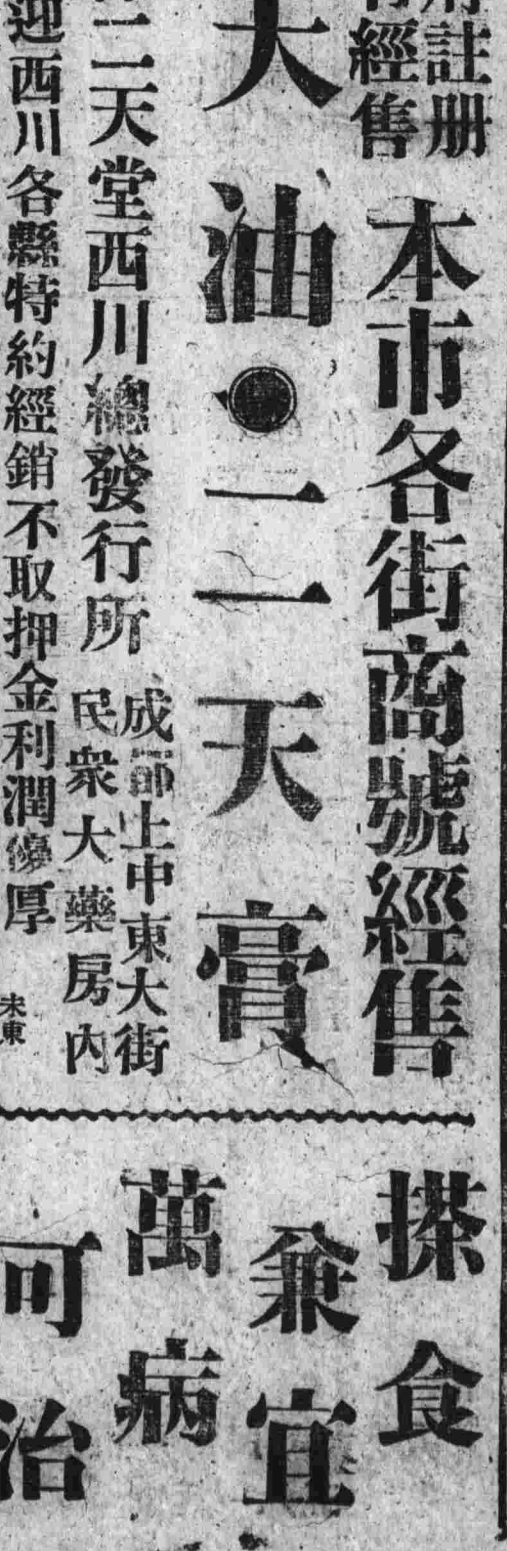 註册
經售
本市各街商號經售
天油●二天膏
二天堂西川總發行所
成都上中東大街
民衆大藥房內
迎西川各縣特約經銷不取押金利潤優厚
未東
搽食
兼宜
萬病
可治